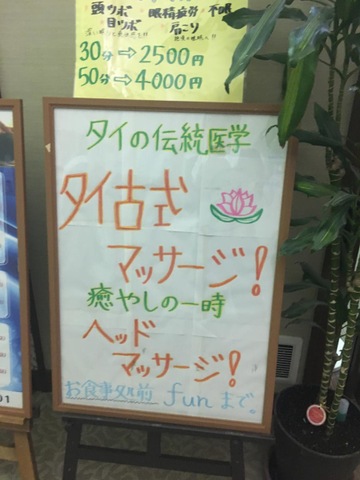 頭ツボ 眼精疲労 不眠
目ツボ 肩こり
30分⇒2500円
50分⇒4000円
タイの伝統医学
タイ古式
マッサージ!
癒やしの一時
ヘッド
マッサージ!
お食事処前 funまで。
91